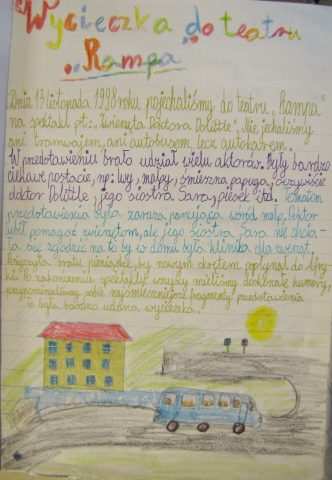 Wycieczka do teatru
"Rampa"
Dnia 13 listopada 1998 roku pojechaliśmy do teatru „Rampa"
na spektakl pt.: „Zwierzęta Doktora Dolittle". Nie jechaliśmy
ani tramwajem, ani autobusem, lecz autokarem.
W przedstawieniu brało udział wielu aktorów. Były bardzo
ciekawe postacie, np: lwy, małpy, śmieszna papuga, oczywiście
doktor Dolittle, jego siostra Sara, piesek itd. Tematem
przedstawienia była zaraza, panująca wśród małp. Doktor
lubił pomagać zwierzętom, ale jego siostra Sara nie chcia-
ła się zgodzić na to by w domu była klinika dla zwierząt.
bratu pieniądze, by nowym okrętem popłynął do Afry-
ki. Po zakończeniu spektaklu wszyscy mieliśmy doskonałe humory,
przypominaliśmy sobie najśmieszniejsze fragmenty przedstawienia
To była bardzo udana wycieczka.